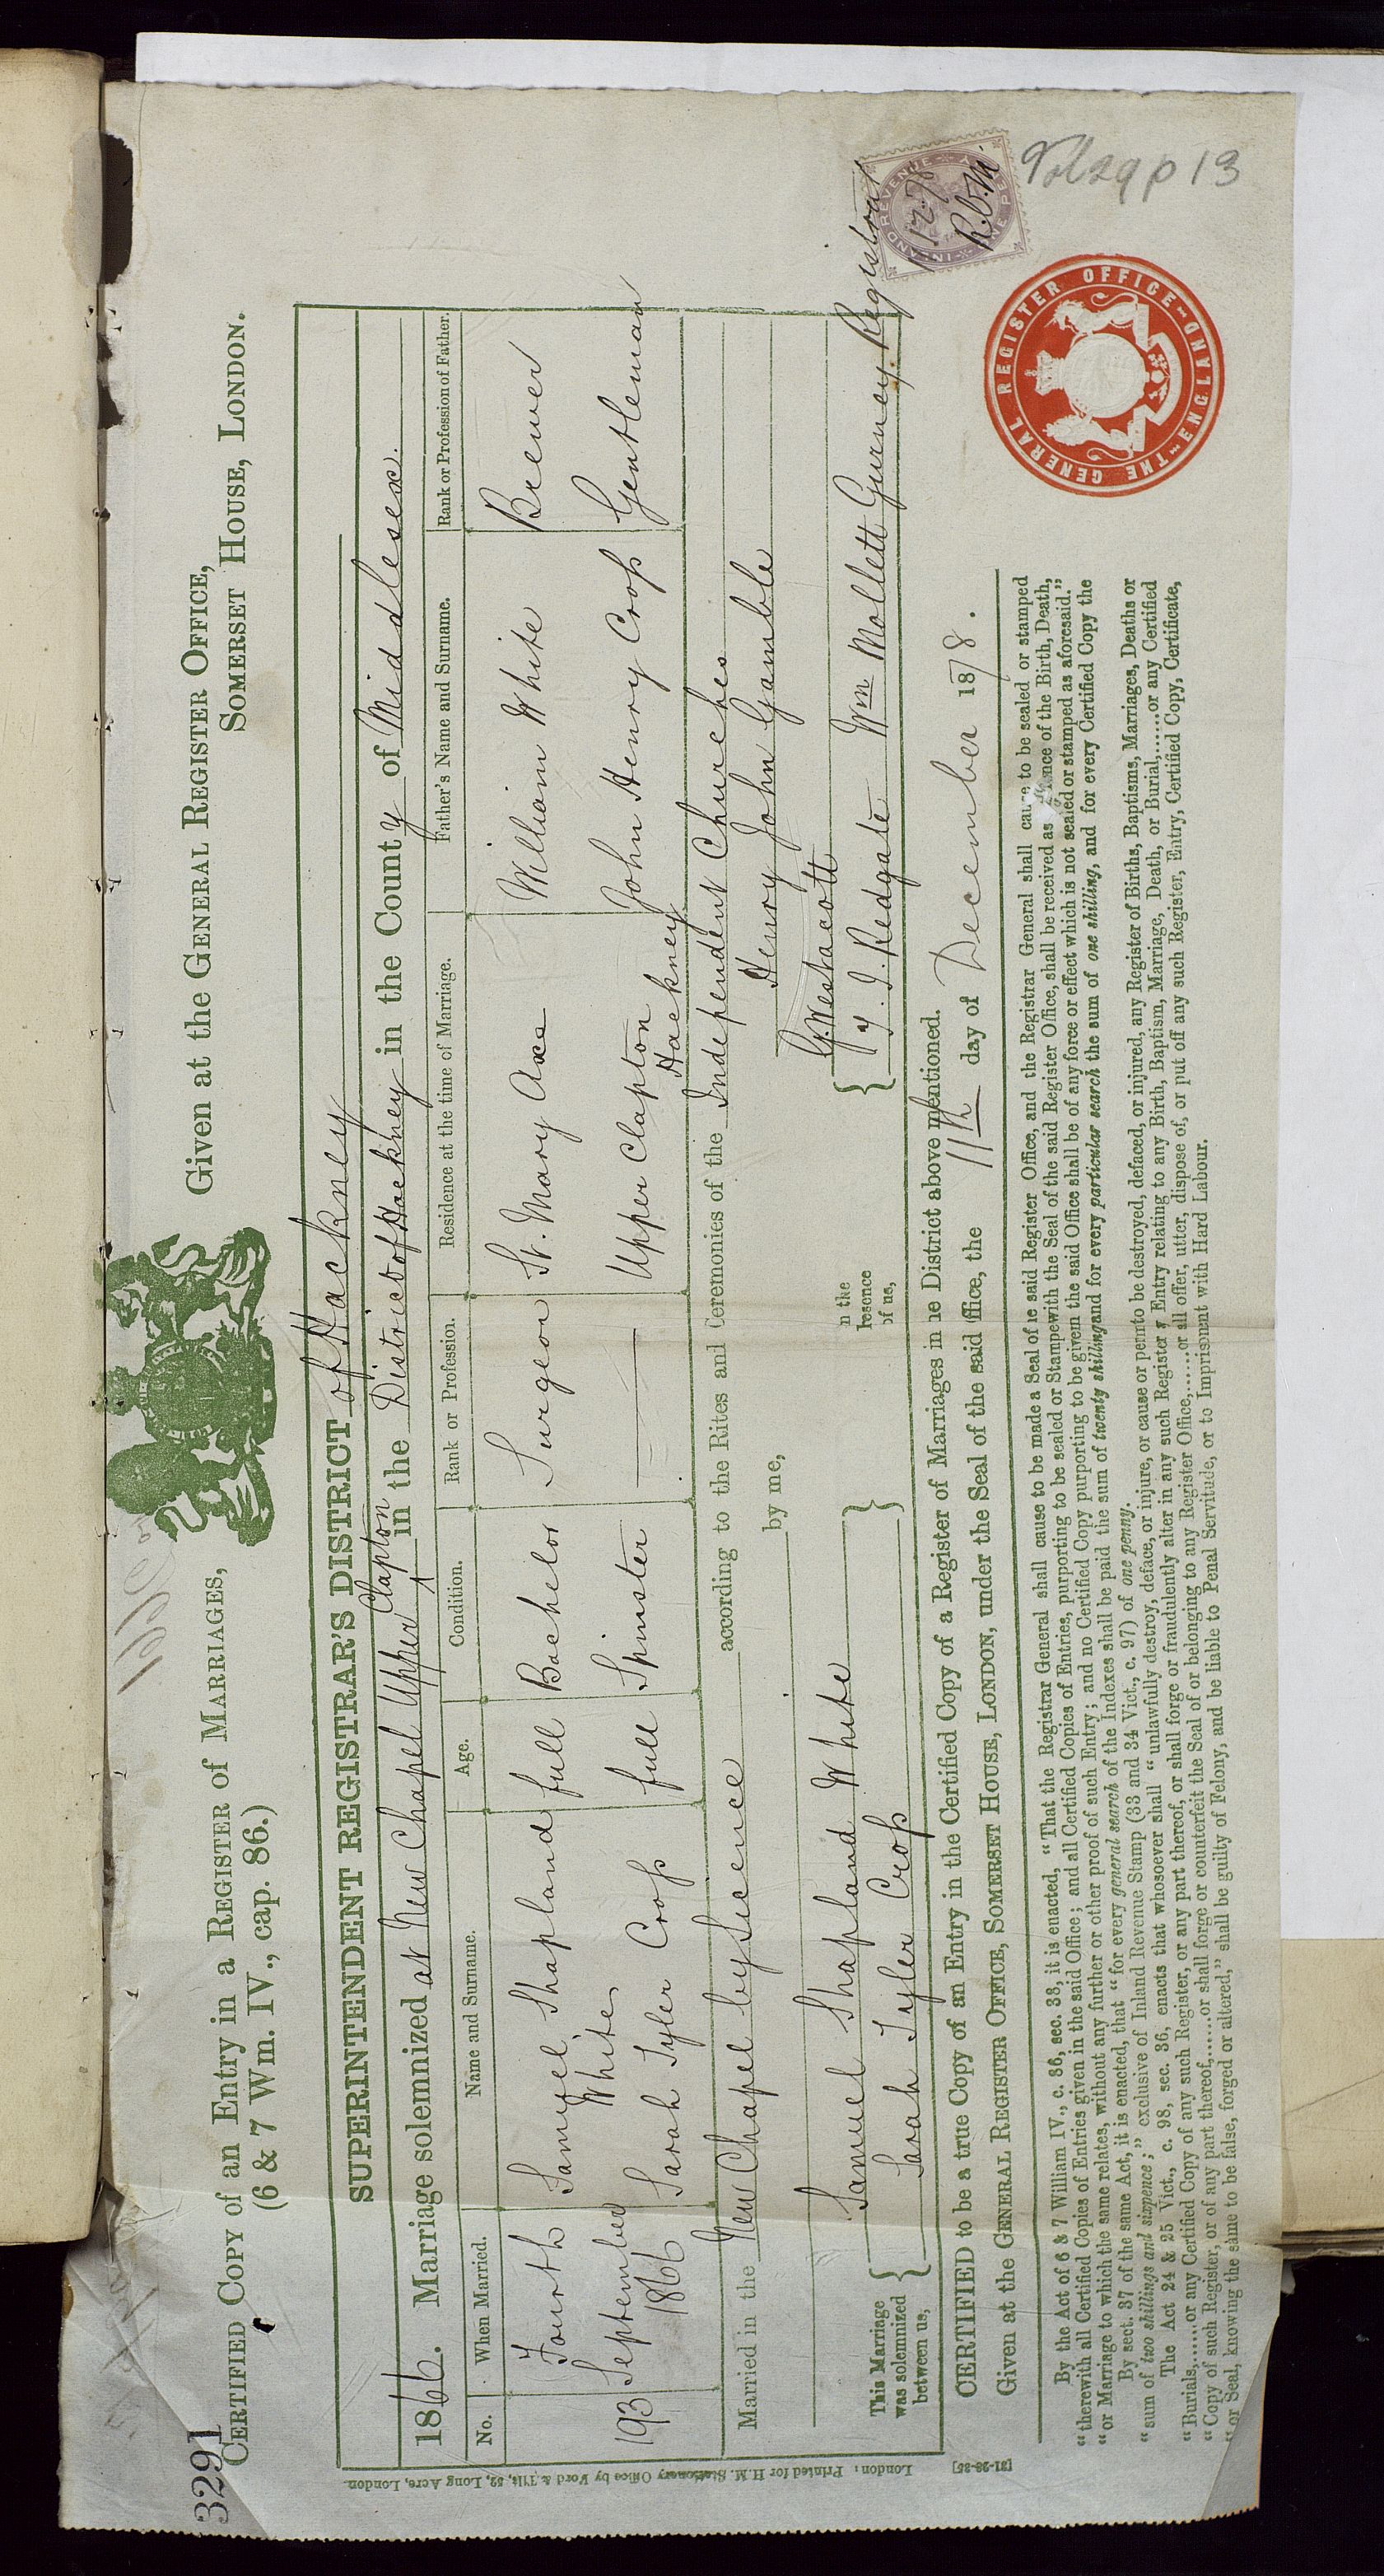 3291
CERTIFIED COPY of an Entry in a REGISTER of MARRIAGES,
(6 & 7 Wm. IV., cap. 86.)
Given at the GENERAL REGISTER OFFICE,
SOMERSET HOUSE, LONDON.
SUPERINTENDENT REGISTRAR'S DISTRICT of Hackney
1866. Marriage solemnized at New Chapel Upper Clapton in the District of Hackney in the County of Middlesex.
No. When Married. Name and Surname. Age. Condition. Rank or Profession. Residence at the time of Marriage. Father's Name and Surname. Rank or Profession of Father.
193 Fourth September 1866
Samuel Shapland White full Bachelor Surgeon St. Mary Axe William White Brewer
Sarah Tyler Crop full Spinster — Upper Clapton Hackney John Henry Crop Gentleman
Married in the New Chapel by Licence according to the Rites and Ceremonies of the Independent Churches
by me, Henry John Gamble
This Marriage was solemnized between us, { Samuel Shapland White
Sarah Tyler Crop }
n the resence of us, { G. Westacott
J. Redgate Wm Mollett Gurney. Registrar
CERTIFIED to be a true Copy of an Entry in the Certified Copy of a Register of Marriages in he District above mentioned.
Given at the GENERAL REGISTER OFFICE, SOMERSET HOUSE, LONDON, under the Seal of the said ffice, the 11th day of December 1878.
By the Act of 6 & 7 William IV., c. 86, sec. 38, it is enacted, "That the Registrar General shall cause to be made a Seal of he said Register Office, and the Registrar General shall cause to be sealed or stamped
"therewith all Certified Copies of Entries given in the said Office; and all Certified Copies of Entries, purporting to be sealed or Stampe with the Seal of the said Register Office, shall be received as nce of the Birth, Death,
"or Marriage to which the same relates, without any further or other proof of such Entry; and no Certified Copy purporting to be give the said Office shall be of any force or effect which is not sealed or stamped as aforesaid."
By sect. 37 of the same Act, it is enacted, that "for every general search of the Indexes shall be paid the sum of twenty shilling and for every particular search the sum of one shilling, and for every Certified Copy the
"sum of two shillings and sixpence;" exclusive of Inland Revenue Stamp (33 and 34 Vict., c. 97) of one penny.
The Act 24 & 25 Vict., c. 98, sec. 36, enacts that whosoever shall "unlawfully destroy, deface, or injure, or cause or perm to be destroyed, defaced, or injured, any Register of Births, Baptisms, Marriages, Deaths or
"Burials,......or any Certified Copy of any such Register, or any part thereof, or shall forge or fraudulently alter in any such Register Entry relating to any Birth, Baptism, Marriage, Death, or Burial,......or any Certified
"Copy of such Register, or of any part thereof,......or shall forge or counterfeit the Seal of or belonging to any Register Office,......or all offer, utter, dispose of, or put off any such Register, Entry, Certified Copy, Certificate,
"or Seal, knowing the same to be false, forged or altered," shall be guilty of Felony, and be liable to Penal Servitude, or to Imprisonment with Hard Labour.
London: Printed for H.M. Stationery Office by Ford & Tilt, 52, Long Acre, London.
[21-28-35]
THE GENERAL REGISTER OFFICE ENGLAND
INLAND REVENUE
ONE PENNY
R.b.M.
Vol 29 p 13